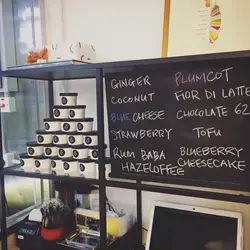 GINGER
COCONUT
BLUE CHEESE
STRAWBERRY
RUM BABA
HAZELCOFFEE
PLUMCOT
FIOR DI LATTE
CHOCOLATE 62
TOFU
BLUEBERRY
CHEESECAKE